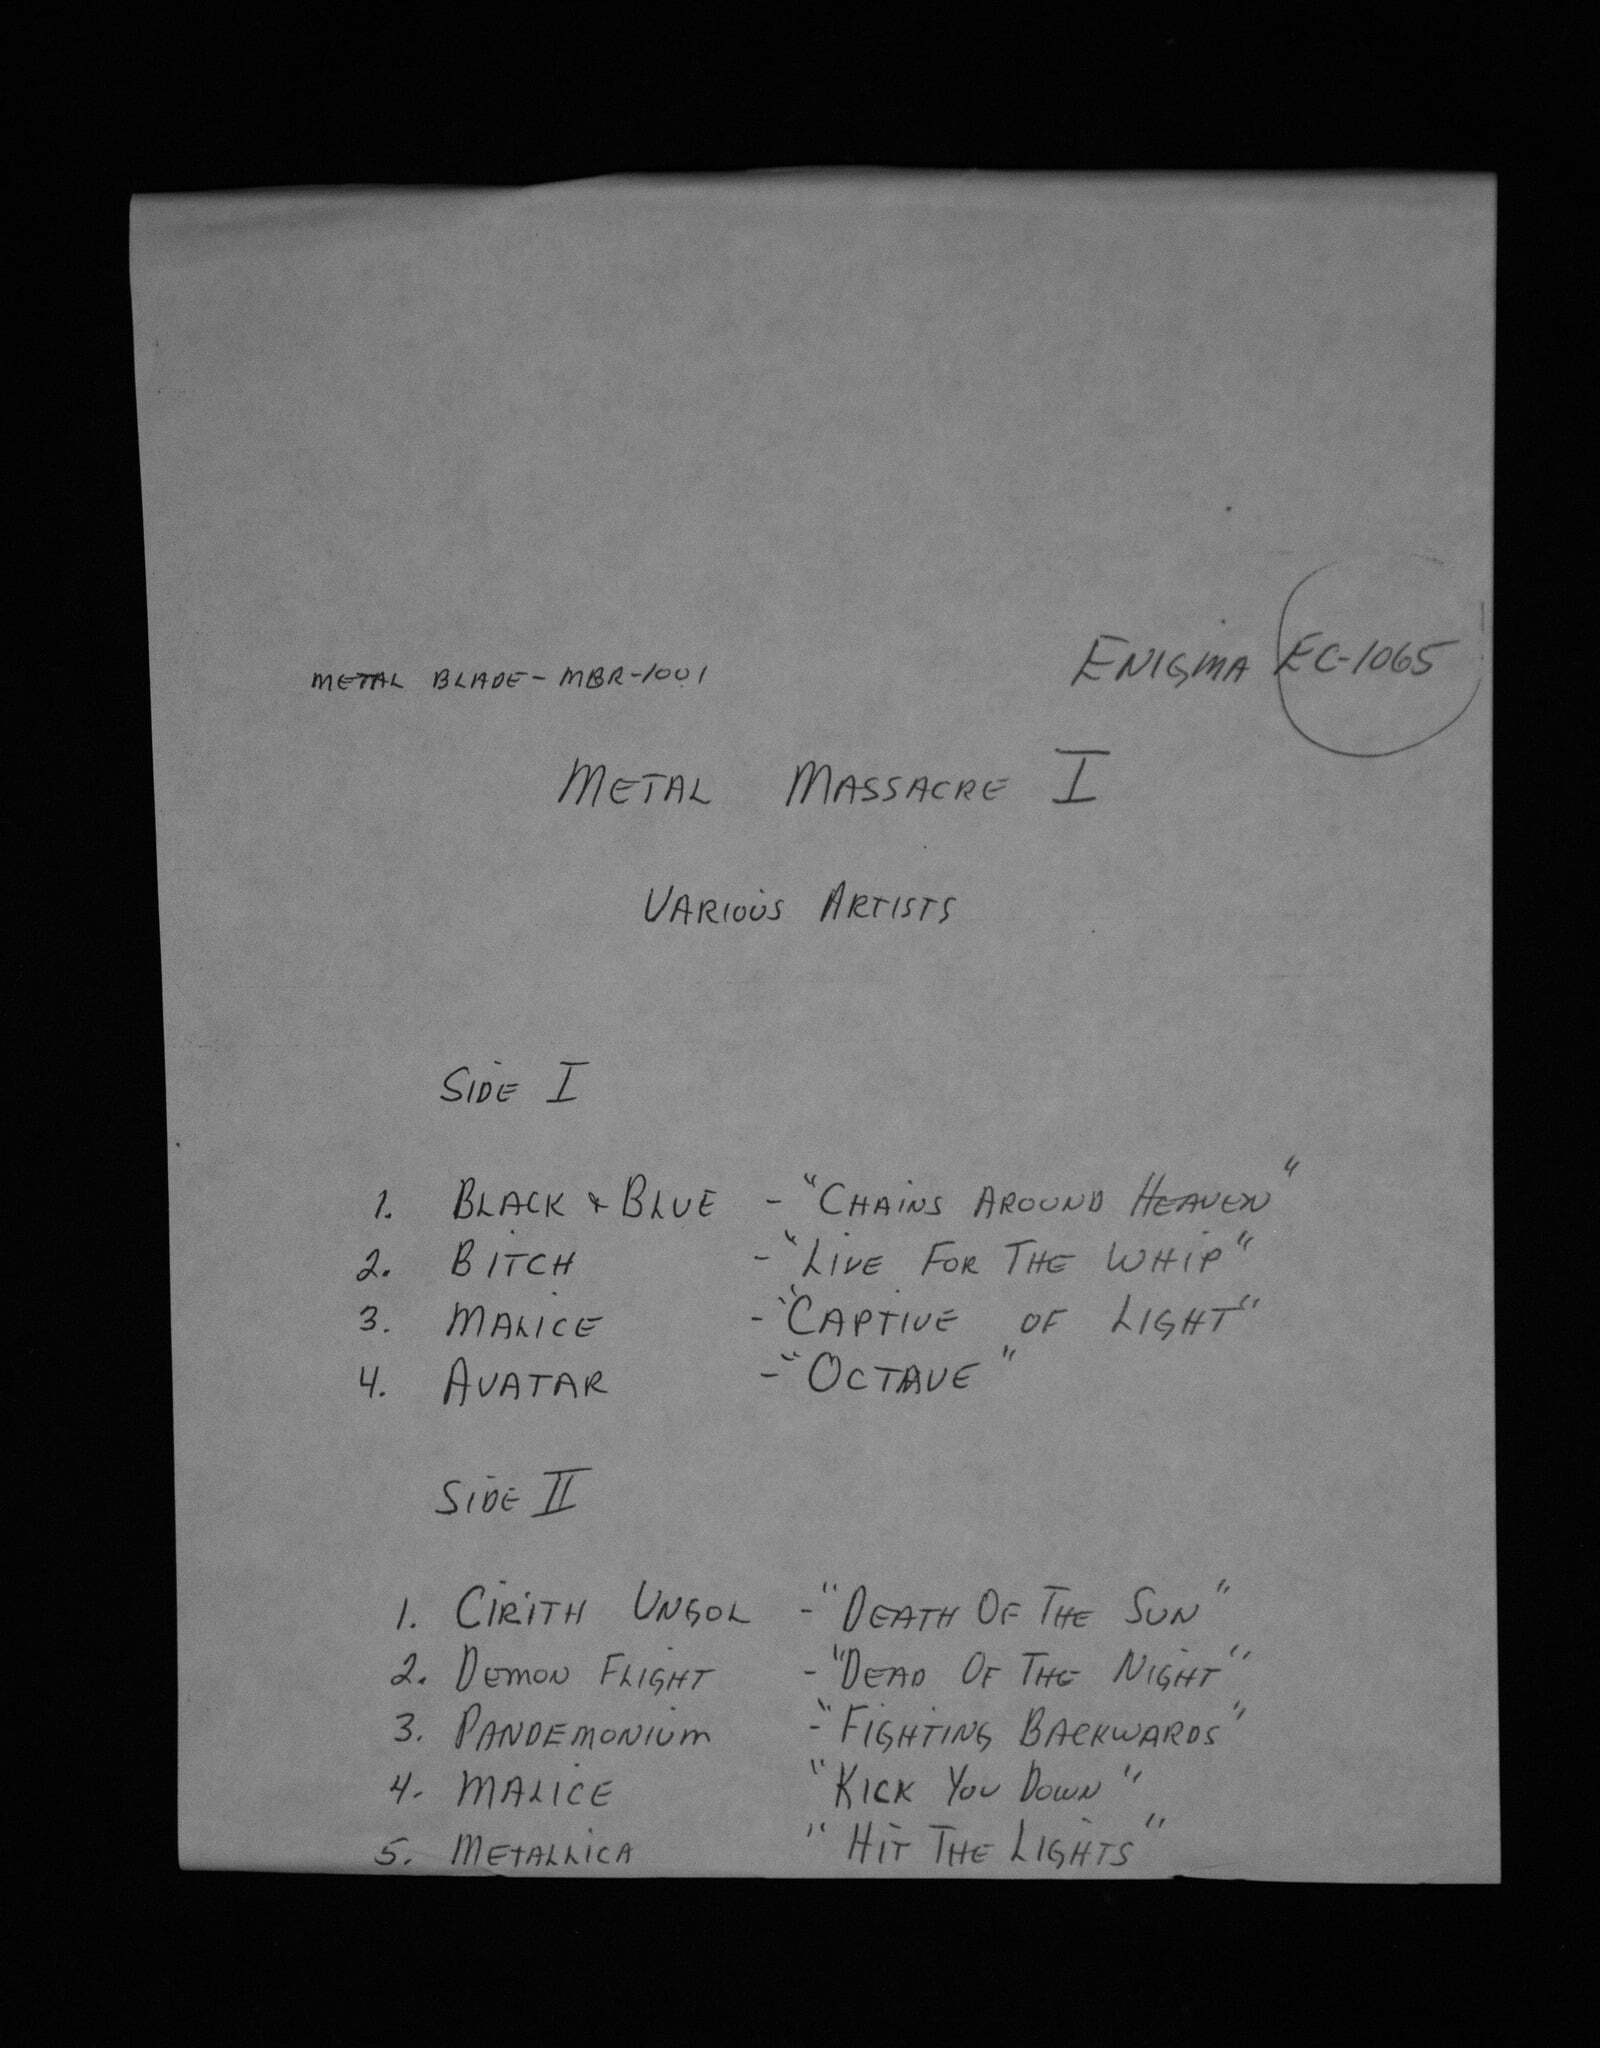 METAL BLADE - MBR-1001
ENIGMA EC-1065
METAL MASSACRE I
VARIOUS ARTISTS
SIDE I
1. BLACK & BLUE - "CHAINS AROUND HEAVEN"
2. BITCH - "LIVE FOR THE WHIP"
3. MALICE - "CAPTIVE OF LIGHT"
4. AVATAR - "OCTAVE"
SIDE II
1. CIRITH UNGOL - "DEATH OF THE SUN"
2. DEMON FLIGHT - "DEAD OF THE NIGHT"
3. PANDEMONIUM - "FIGHTING BACKWARDS"
4. MALICE "KICK YOU DOWN"
5. METALLICA "HIT THE LIGHTS"